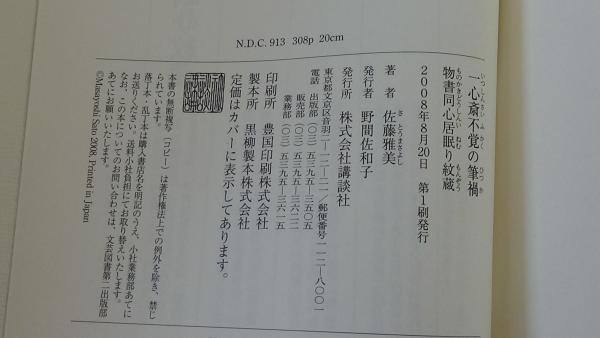 N.D.C. 913 308p 20cm
一心斎不覚の筆禍
いっしんさいふかくのひっか
物書同心居眠り紋蔵
ものかきどうしんいねむりもんぞう
2008年8月20日 第1刷発行
著者 佐藤雅美
さとうまさよし
発行者 野間佐和子
発行所 株式会社講談社
東京都文京区音羽二―一二―二一/郵便番号一一二―八〇〇一
電話 出版部(〇三)五三九五―三五〇五
販売部(〇三)五三九五―三六二二
業務部(〇三)五三九五―三六一五
印刷所 豊国印刷株式会社
製本所 黒柳製本株式会社
定価はカバーに表示してあります。
本書の無断複写(コピー)は著作権法上での例外を除き、禁じ
られています。
落丁本・乱丁本は購入書店名を明記のうえ、小社業務部あてに
お送りください。送料小社負担にてお取り替えいたします。
なお、この本についてのお問い合わせは、文芸図書第二出版部
あてにお願いいたします。
©Masayoshi Sato 2008, Printed in Japan